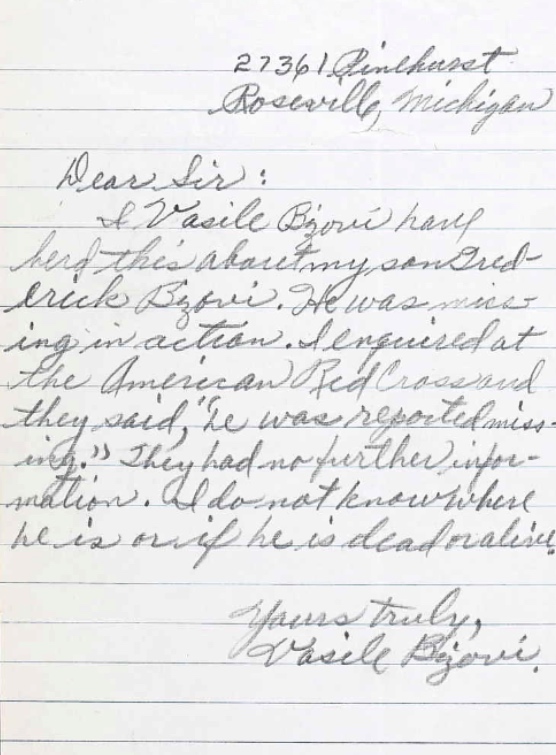 27361 Pinehurst
Roseville, Michigan
Dear Sir:
I Vasile Bizovi have
herd this about my son Fred-
erick Bizovi. He was miss-
ing in action. I enquired at
the American Red Cross and
they said, "he was reported miss-
ing." They had no further infor-
mation. I do not know where
he is or if he is dead or alive.
Yours truly,
Vasile Bizovi.